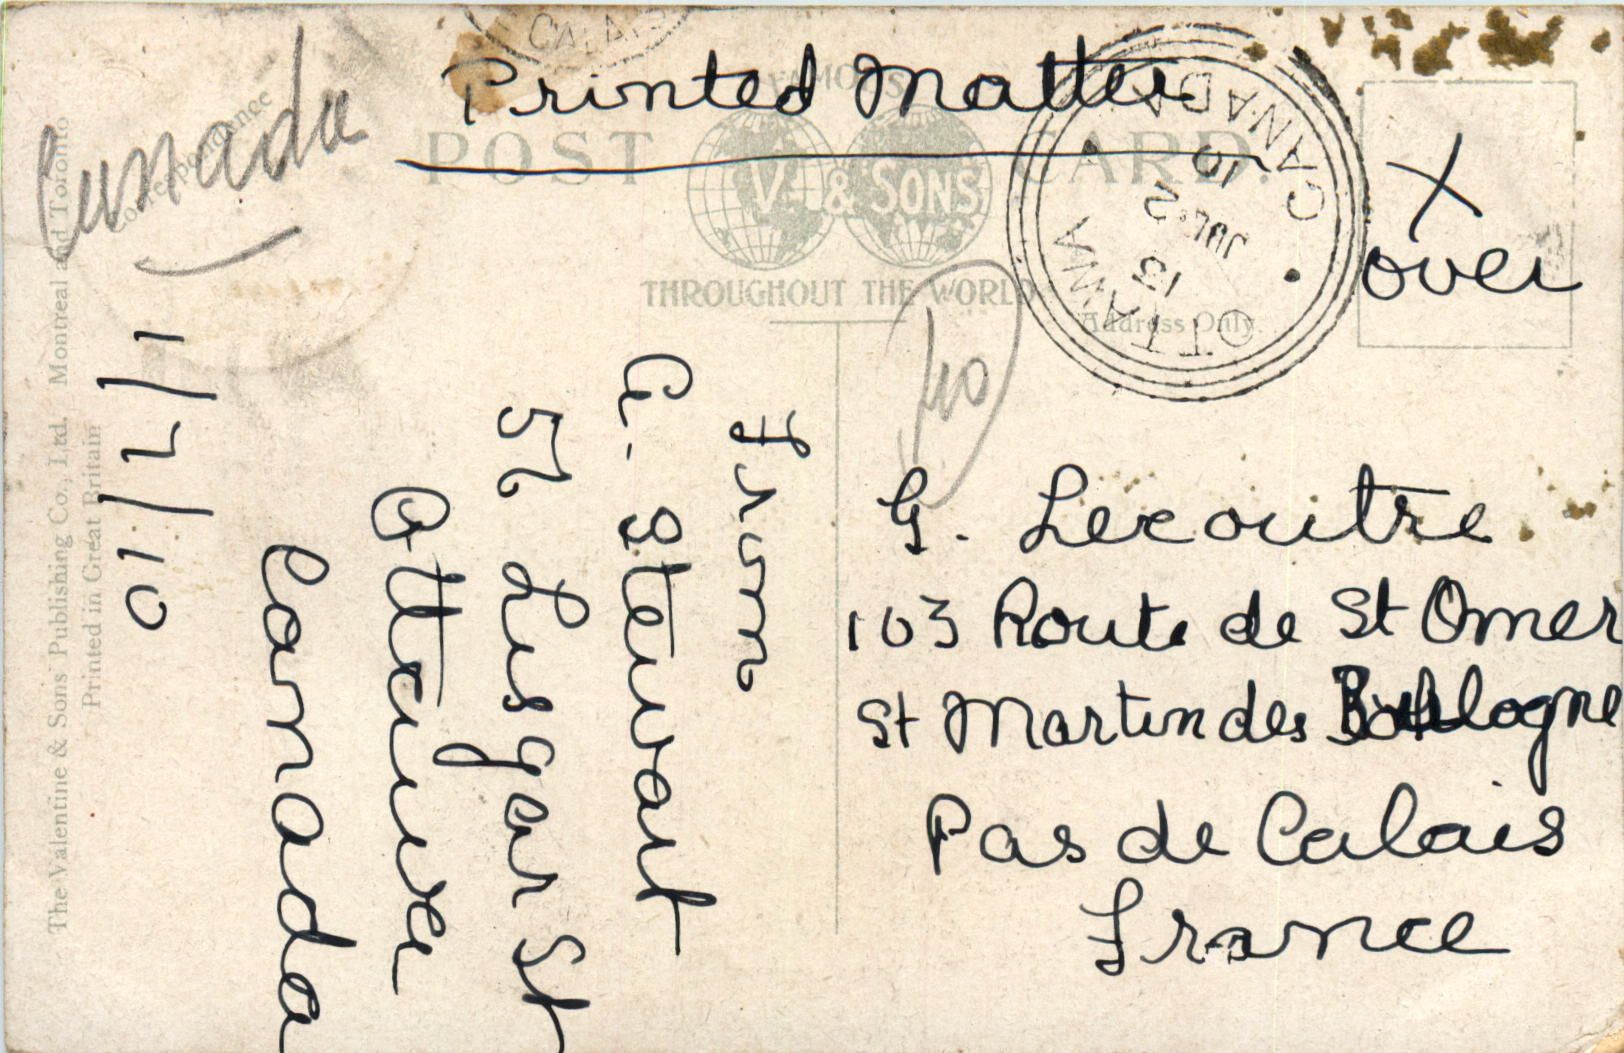 CALAIS
Printed Matter
FAMOUS
POST CARD.
V. & SONS
THROUGHOUT THE WORLD
Correspondence
Address Only.
Canada
OTTAWA CANADA
13
JUL 2
10
X
over
40
G. Lecoutre
103 Route de St Omer
St Martin des Boulogne
Pas de Calais
France
From
G. Stewart
56 Lisgar St
Ottawa
Canada
1/7/10
The Valentine & Sons' Publishing Co., Ltd. Montreal and Toronto
Printed in Great Britain